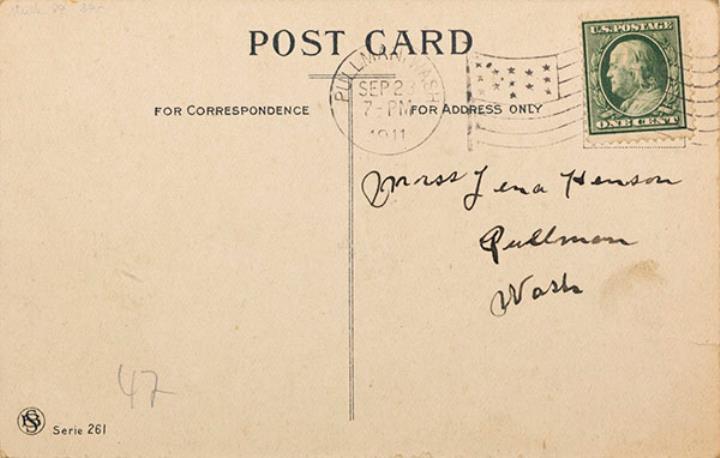 POST CARD
PULLMAN WASH
SEP 23
7-PM
1911
U.S. POSTAGE
ONE CENT
FOR CORRESPONDENCE
FOR ADDRESS ONLY
Miss Lena Henson
Pullman
Wash
47
Serie 261